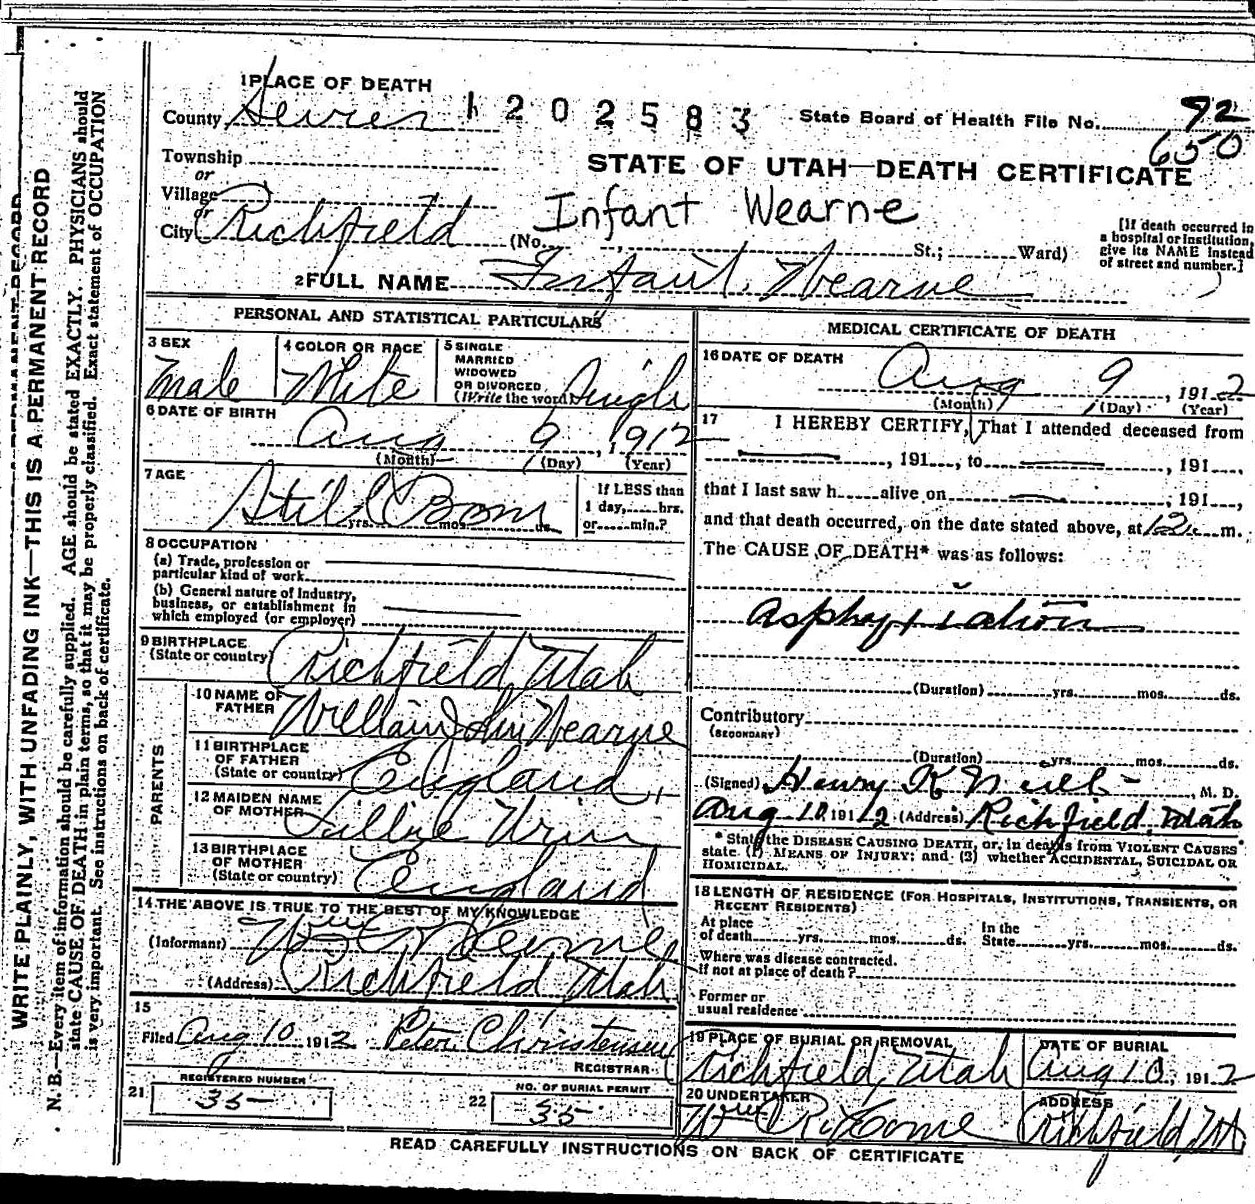 1 PLACE OF DEATH
County Sevier 1202583 State Board of Health File No. 92
650
Township
or
STATE OF UTAH—DEATH CERTIFICATE
Village
or
Infant Wearne
City Richfield (No. St.; Ward)
[If death occurred in
a hospital or institution,
give its NAME instead
of street and number.]
2 FULL NAME Infant Wearne
PERSONAL AND STATISTICAL PARTICULARS
3 SEX
Male
4 COLOR OR RACE
White
5 SINGLE
MARRIED
WIDOWED
OR DIVORCED
(Write the word) Single
6 DATE OF BIRTH
Aug 9, 1912
(Month) (Day) (Year)
7 AGE
Still Born
yrs. mos. ds.
If LESS than
1 day, hrs.
or min.?
8 OCCUPATION
(a) Trade, profession or
particular kind of work
(b) General nature of Industry,
business, or establishment in
which employed (or employer)
9 BIRTHPLACE
(State or country) Richfield, Utah
PARENTS
10 NAME OF
FATHER William John Wearne
11 BIRTHPLACE
OF FATHER
(State or country) England
12 MAIDEN NAME
OF MOTHER Lillie
13 BIRTHPLACE
OF MOTHER
(State or country) England
14 THE ABOVE IS TRUE TO THE BEST OF MY KNOWLEDGE
(Informant) Wm
(Address) Richfield Utah
15
Filed Aug 10 1912 Peter Christensen
REGISTRAR
21 REGISTERED NUMBER
35
22 NO. OF BURIAL PERMIT
35
MEDICAL CERTIFICATE OF DEATH
16 DATE OF DEATH
Aug 9, 1912
(Month) (Day) (Year)
17 I HEREBY CERTIFY, That I attended deceased from
, 191 , to , 191 ,
that I last saw h alive on , 191 ,
and that death occurred, on the date stated above, at 12 m.
The CAUSE OF DEATH* was as follows:
Asphyxiation
(Duration) yrs. mos. ds.
Contributory
(SECONDARY)
(Duration) yrs. mos. ds.
(Signed) Henry K , M. D.
Aug 10 1912 (Address) Richfield, Utah
* State the DISEASE CAUSING DEATH, or, in deaths from VIOLENT CAUSES
state (1) MEANS OF INJURY; and (2) whether ACCIDENTAL, SUICIDAL OR
HOMICIDAL.
18 LENGTH OF RESIDENCE (FOR HOSPITALS, INSTITUTIONS, TRANSIENTS, OR
RECENT RESIDENTS)
At place
of death yrs. mos. ds.
In the
State yrs. mos. ds.
Where was disease contracted.
If not at place of death?
Former or
usual residence
19 PLACE OF BURIAL OR REMOVAL
Richfield, Utah
DATE OF BURIAL
Aug 10, 1912
20 UNDERTAKER
Wm
ADDRESS
Richfield, Ut
READ CAREFULLY INSTRUCTIONS ON BACK OF CERTIFICATE
WRITE PLAINLY, WITH UNFADING INK—THIS IS A PERMANENT RECORD
N. B.—Every item of information should be carefully supplied. AGE should be stated EXACTLY. PHYSICIANS should
state CAUSE OF DEATH in plain terms, so that it may be properly classified. Exact statement of OCCUPATION
is very important. See instructions on back of certificate.